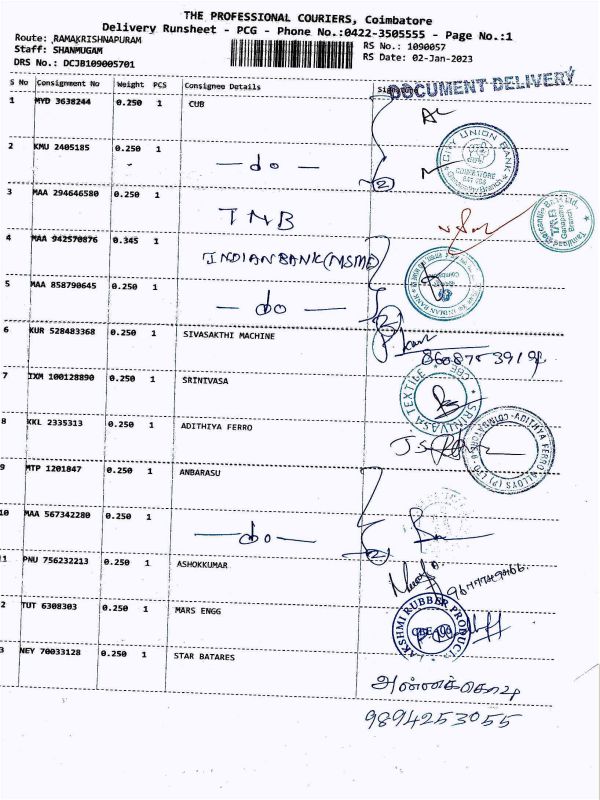 THE PROFESSIONAL COURIERS, Coimbatore
Delivery Runsheet - PCG - Phone No.:0422-3505555 - Page No.:1
Route: RAMAKRISHNAPURAM
RS No.: 1090057
Staff: SHANMUGAM
RS Date: 02-Jan-2023
DRS No.: DCJB109005701
S No Consignment No Weight PCS Consignee Details Signature
DOCUMENT DELIVERY
1 MYD 3638244 0.250 1 CUB
2 KMU 2405185 0.250 1 — do —
CITY UNION BANK
COIMBATORE
2
3 MAA 294646580 0.250 1 TMB
4 MAA 942570876 0.345 1 INDIAN BANK (MSME)
5 MAA 858790645 0.250 1 — do —
6 KUR 528483368 0.250 1 SIVASAKTHI MACHINE
7 IXM 100128890 0.250 1 SRINIVASA
SRINIVASA TEXTILE CBE
8 KKL 2335313 0.250 1 ADITHIYA FERRO
ADITHIYA FERRO ALLOYS (P) LTD
9 MTP 1201847 0.250 1 ANBARASU
10 MAA 567342280 0.250 1 — do —
2
1 PNU 756232213 0.250 1 ASHOKKUMAR
2 TUT 6308303 0.250 1 MARS ENGG
AKSHMI RUBBER PRODUC
3 NEY 70033128 0.250 1 STAR BATARES
அன்னக்கொடி
9894253055